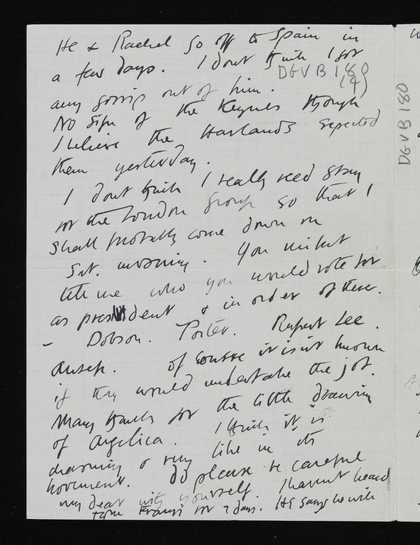 He & Rachel go off to Spain in
a few days. I dont think I got
any gossip out of him.
DGVB 180
(4)
No sign of the Keynes though
I believe the Harlands expected
them yesterday.
I dont think I really need stay
for the London Group so that I
shall probably come down on
Sat. morning. You might
tell me who you would vote for
as president & in order of
- Dobson. Porter. Rupert Lee.
Of course it isnt known
if they would undertake the job.
Many thanks for the little drawing
of Angelica. I think it is
charming & very like in its
movement. do please be careful
my dear with yourself. I havent heard
from Francis for 2 days. He says he will
DGVB 180